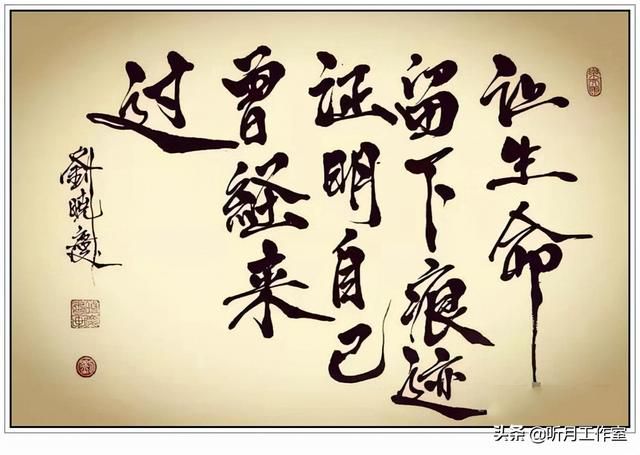 让生命
留下痕迹
证明自己
曾経来
过
劉晓慶
头条 @听月工作室